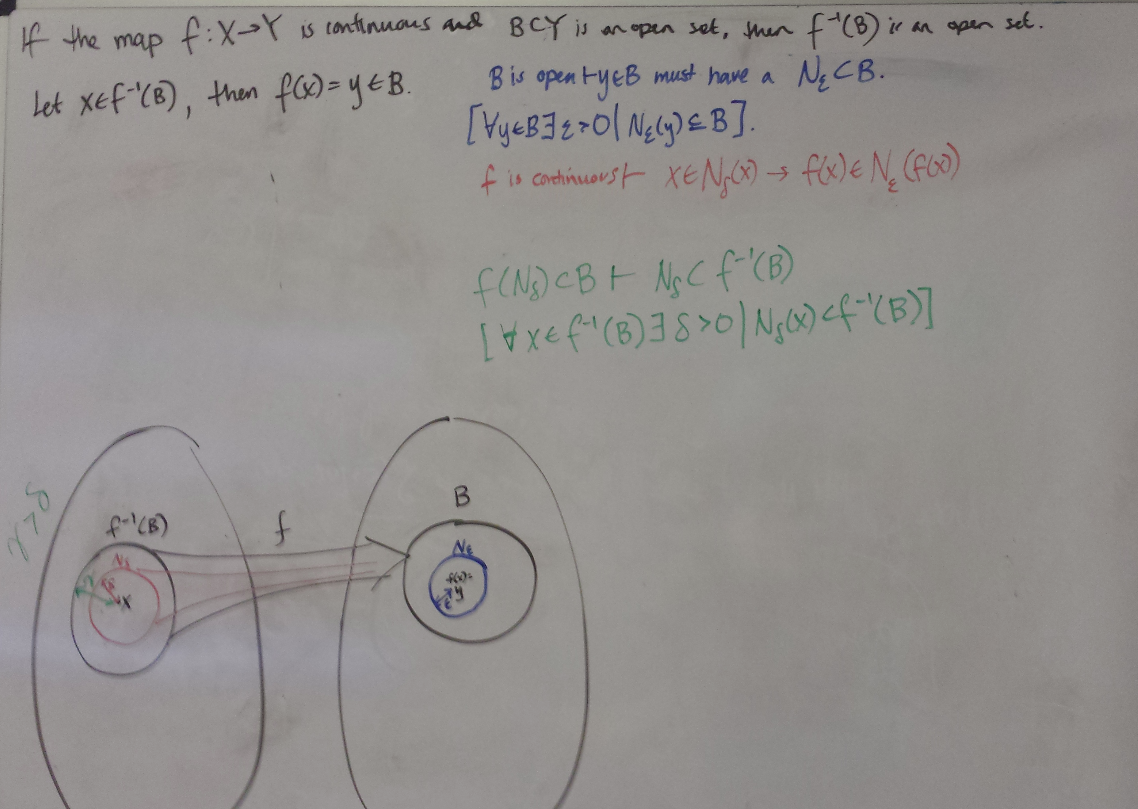 If the map f: X→Y is continuous and B⊂Y is an open set, then f⁻¹(B) is an open set.
Let x∈f⁻¹(B), then f(x)=y∈B.
B is open ⊢ y∈B must have a N_ε⊂B.
[∀y∈B∃ε>0|N_ε(y)⊆B].
f is continuous ⊢ x∈N_δ(x) → f(x)∈N_ε(f(x))
f(N_δ)⊂B ⊢ N_δ⊂f⁻¹(B)
[∀x∈f⁻¹(B)∃δ>0|N_δ(x)⊂f⁻¹(B)]
γ>δ
f⁻¹(B)
f
B
N_δ
γ
δ
x
N_ε
f(x)=
y
ε